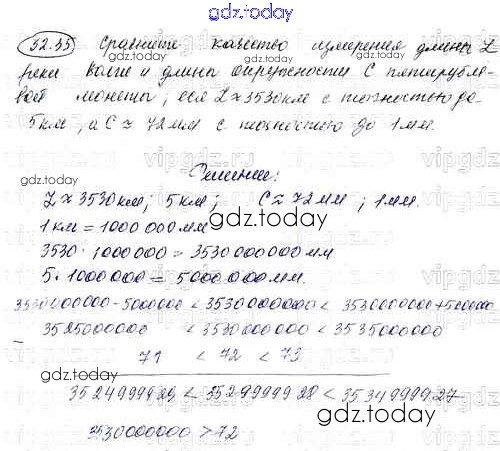 gdz.today
32.35 Сравните качество измерения длины L
gdz.today
реки Волги и длины окружности C пятирубле-
вой монеты, если L ≈ 3530 км с точностью до
5 км, а C ≈ 72 мм с точностью до 1 мм.
gdz.today
Решение:
L ≈ 3530 км; 5 км; C ≈ 72 мм; 1 мм.
gdz.today
1 км = 1000 000 мм
3530 · 1000000 = 3530 000000 мм
5 · 1000000 = 5000000 мм.
gdz.today
3530000000 - 5000000 < 3530000000 < 3530000000 + 5000000
3525000000 < 3530000000 < 3535000000
gdz.today
71 < 72 < 73
3524999929 < 3529999928 < 3534999927
gdz.today
3530000000 > 72
gdz.today